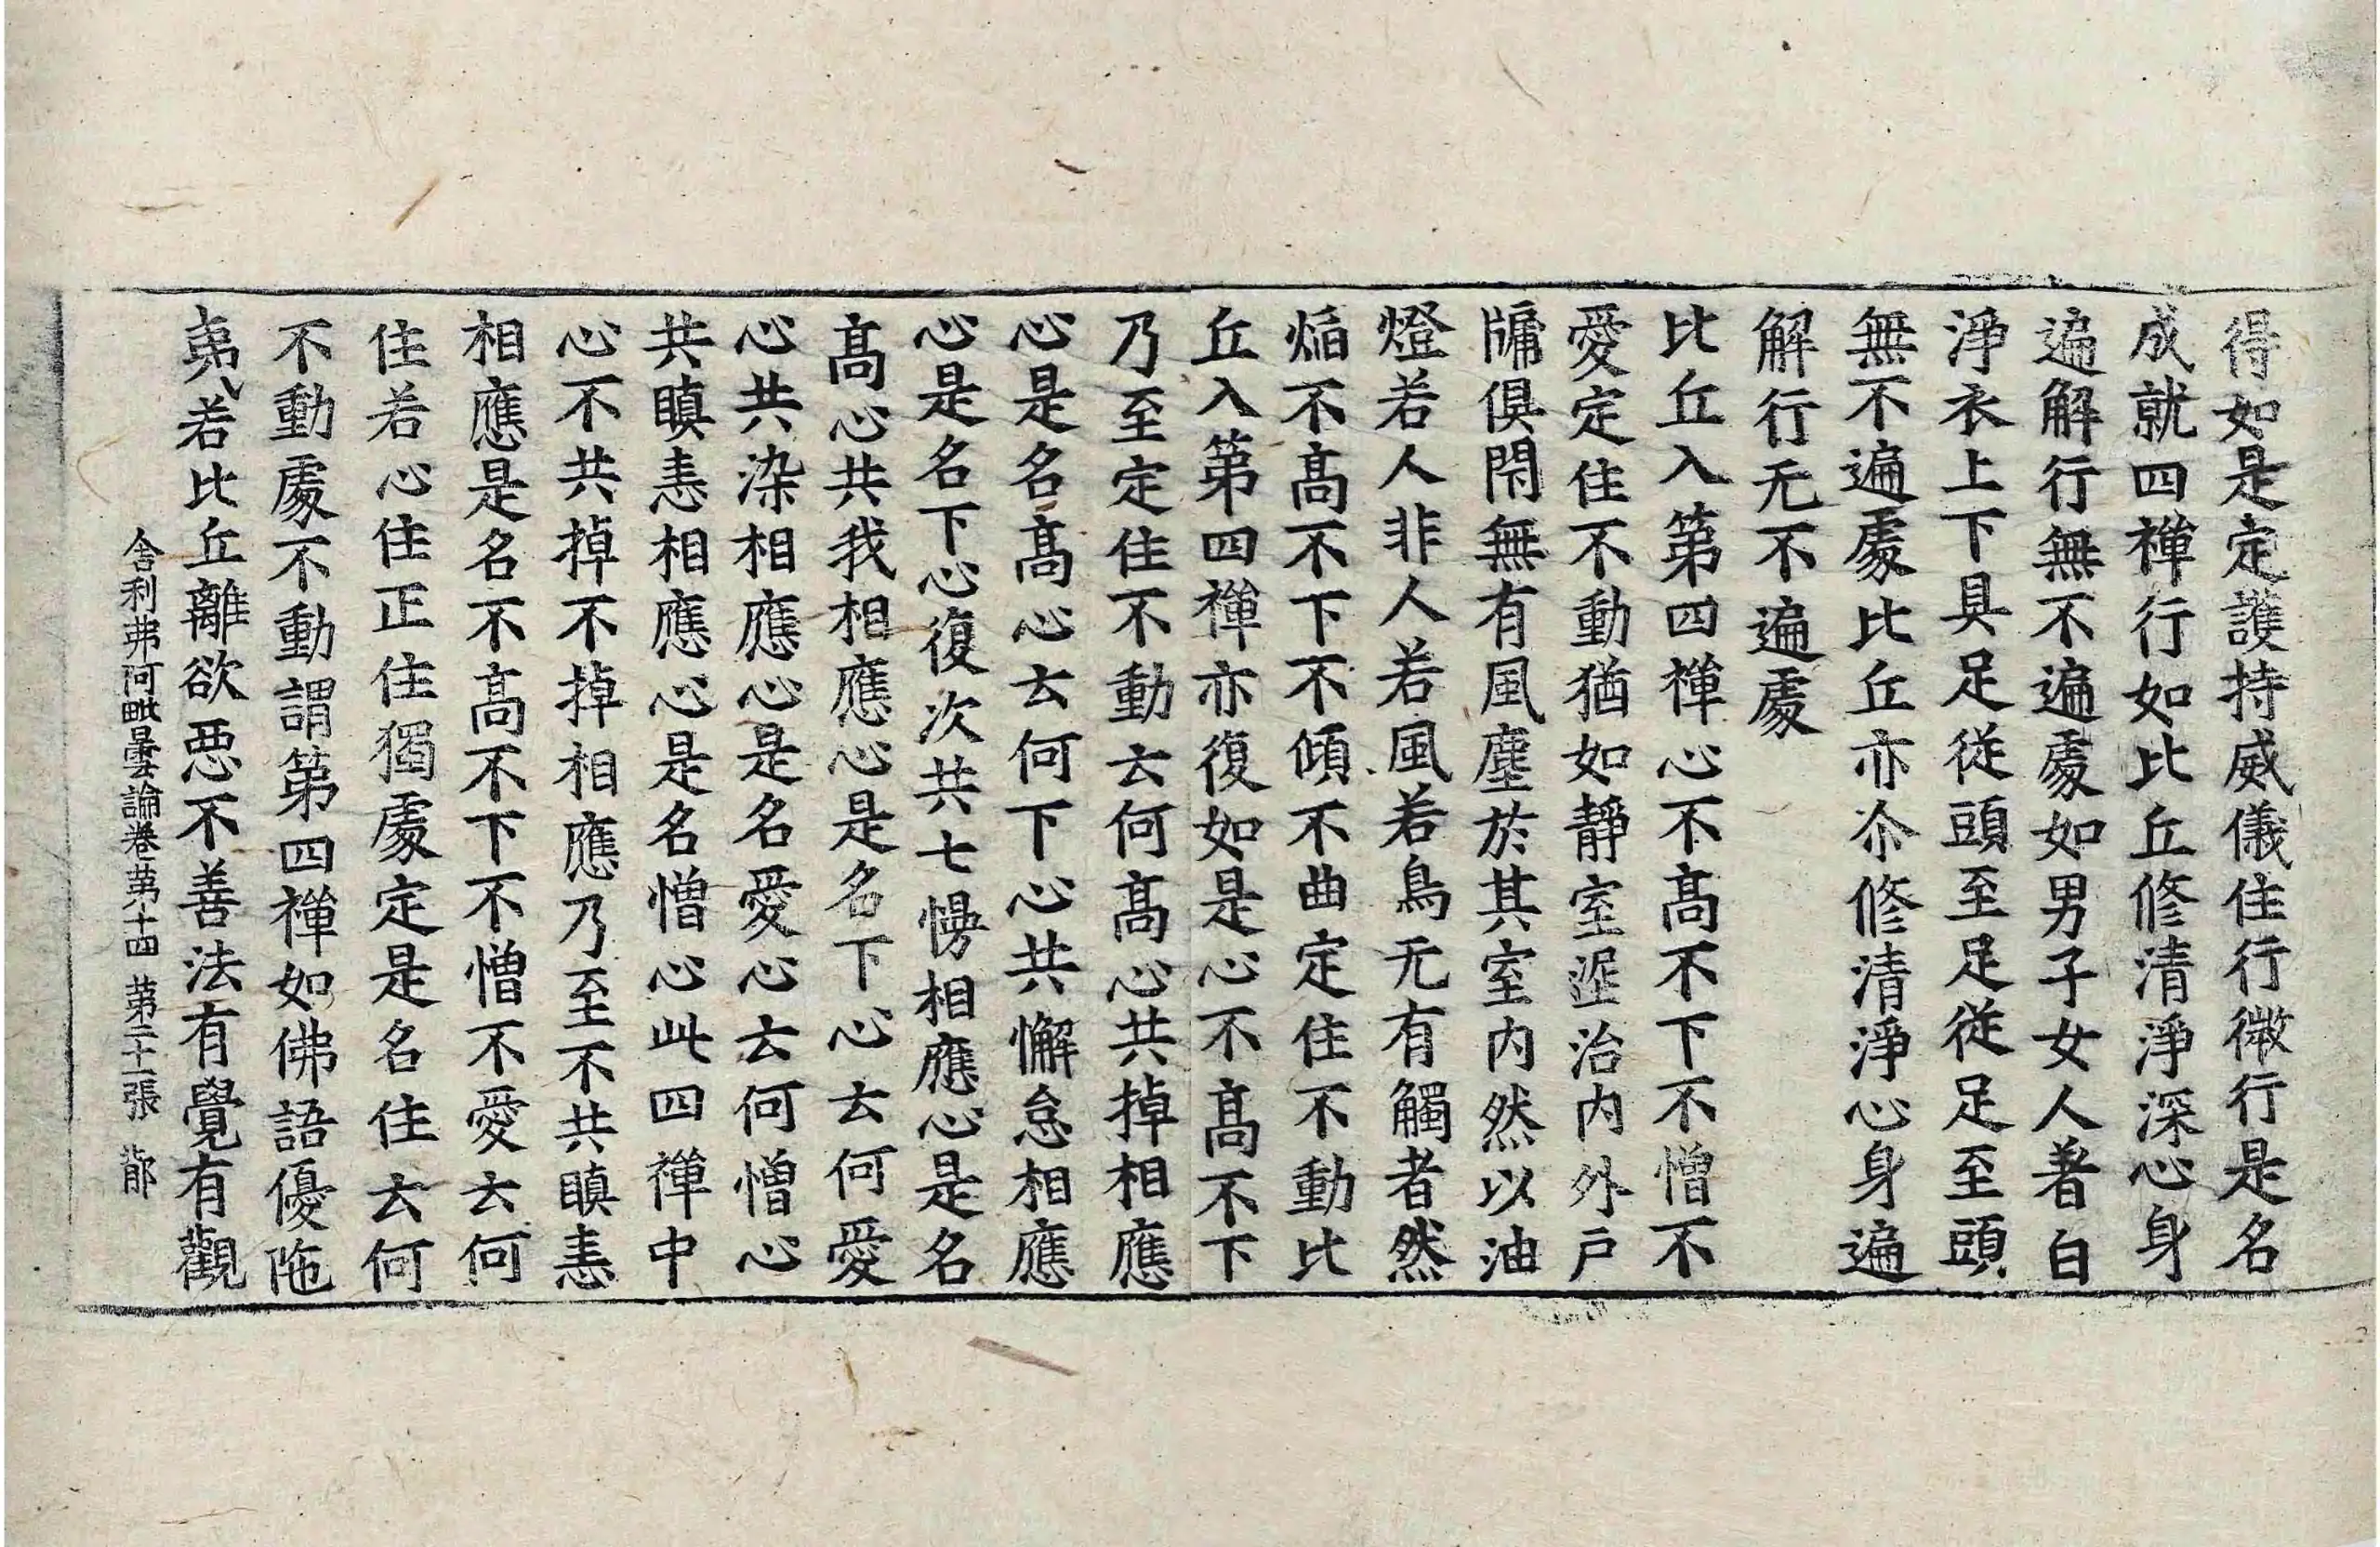 得如是定護持威儀住行微行是名
成就四禪行如比丘修清淨深心身
遍解行無不遍處如男子女人著白
淨衣上下具足從頭至足從足至頭
無不遍處比丘亦尒修清淨心身遍
解行无不遍處
比丘入第四禪心不髙不下不憎不
愛定住不動猶如靜室埿治內外戶
牖俱閇無有風塵於其室內然以油
燈若人非人若風若鳥无有觸者然
焰不髙不下不傾不曲定住不動比
丘入第四禪亦復如是心不髙不下
乃至定住不動云何髙心共掉相應
心是名髙心云何下心共懈怠相應
心是名下心復次共七慢相應心是名
髙心共我相應心是名下心云何愛
心共染相應心是名愛心云何憎心
共瞋恚相應心是名憎心此四禪中
心不共掉不掉相應乃至不共瞋恚
相應是名不髙不下不憎不愛云何
住若心住正住獨處定是名住云何
不動處不動謂第四禪如佛語優陁
夷若比丘離欲惡不善法有覺有觀
舍利弗阿毗曇論卷第十四 第二十一張